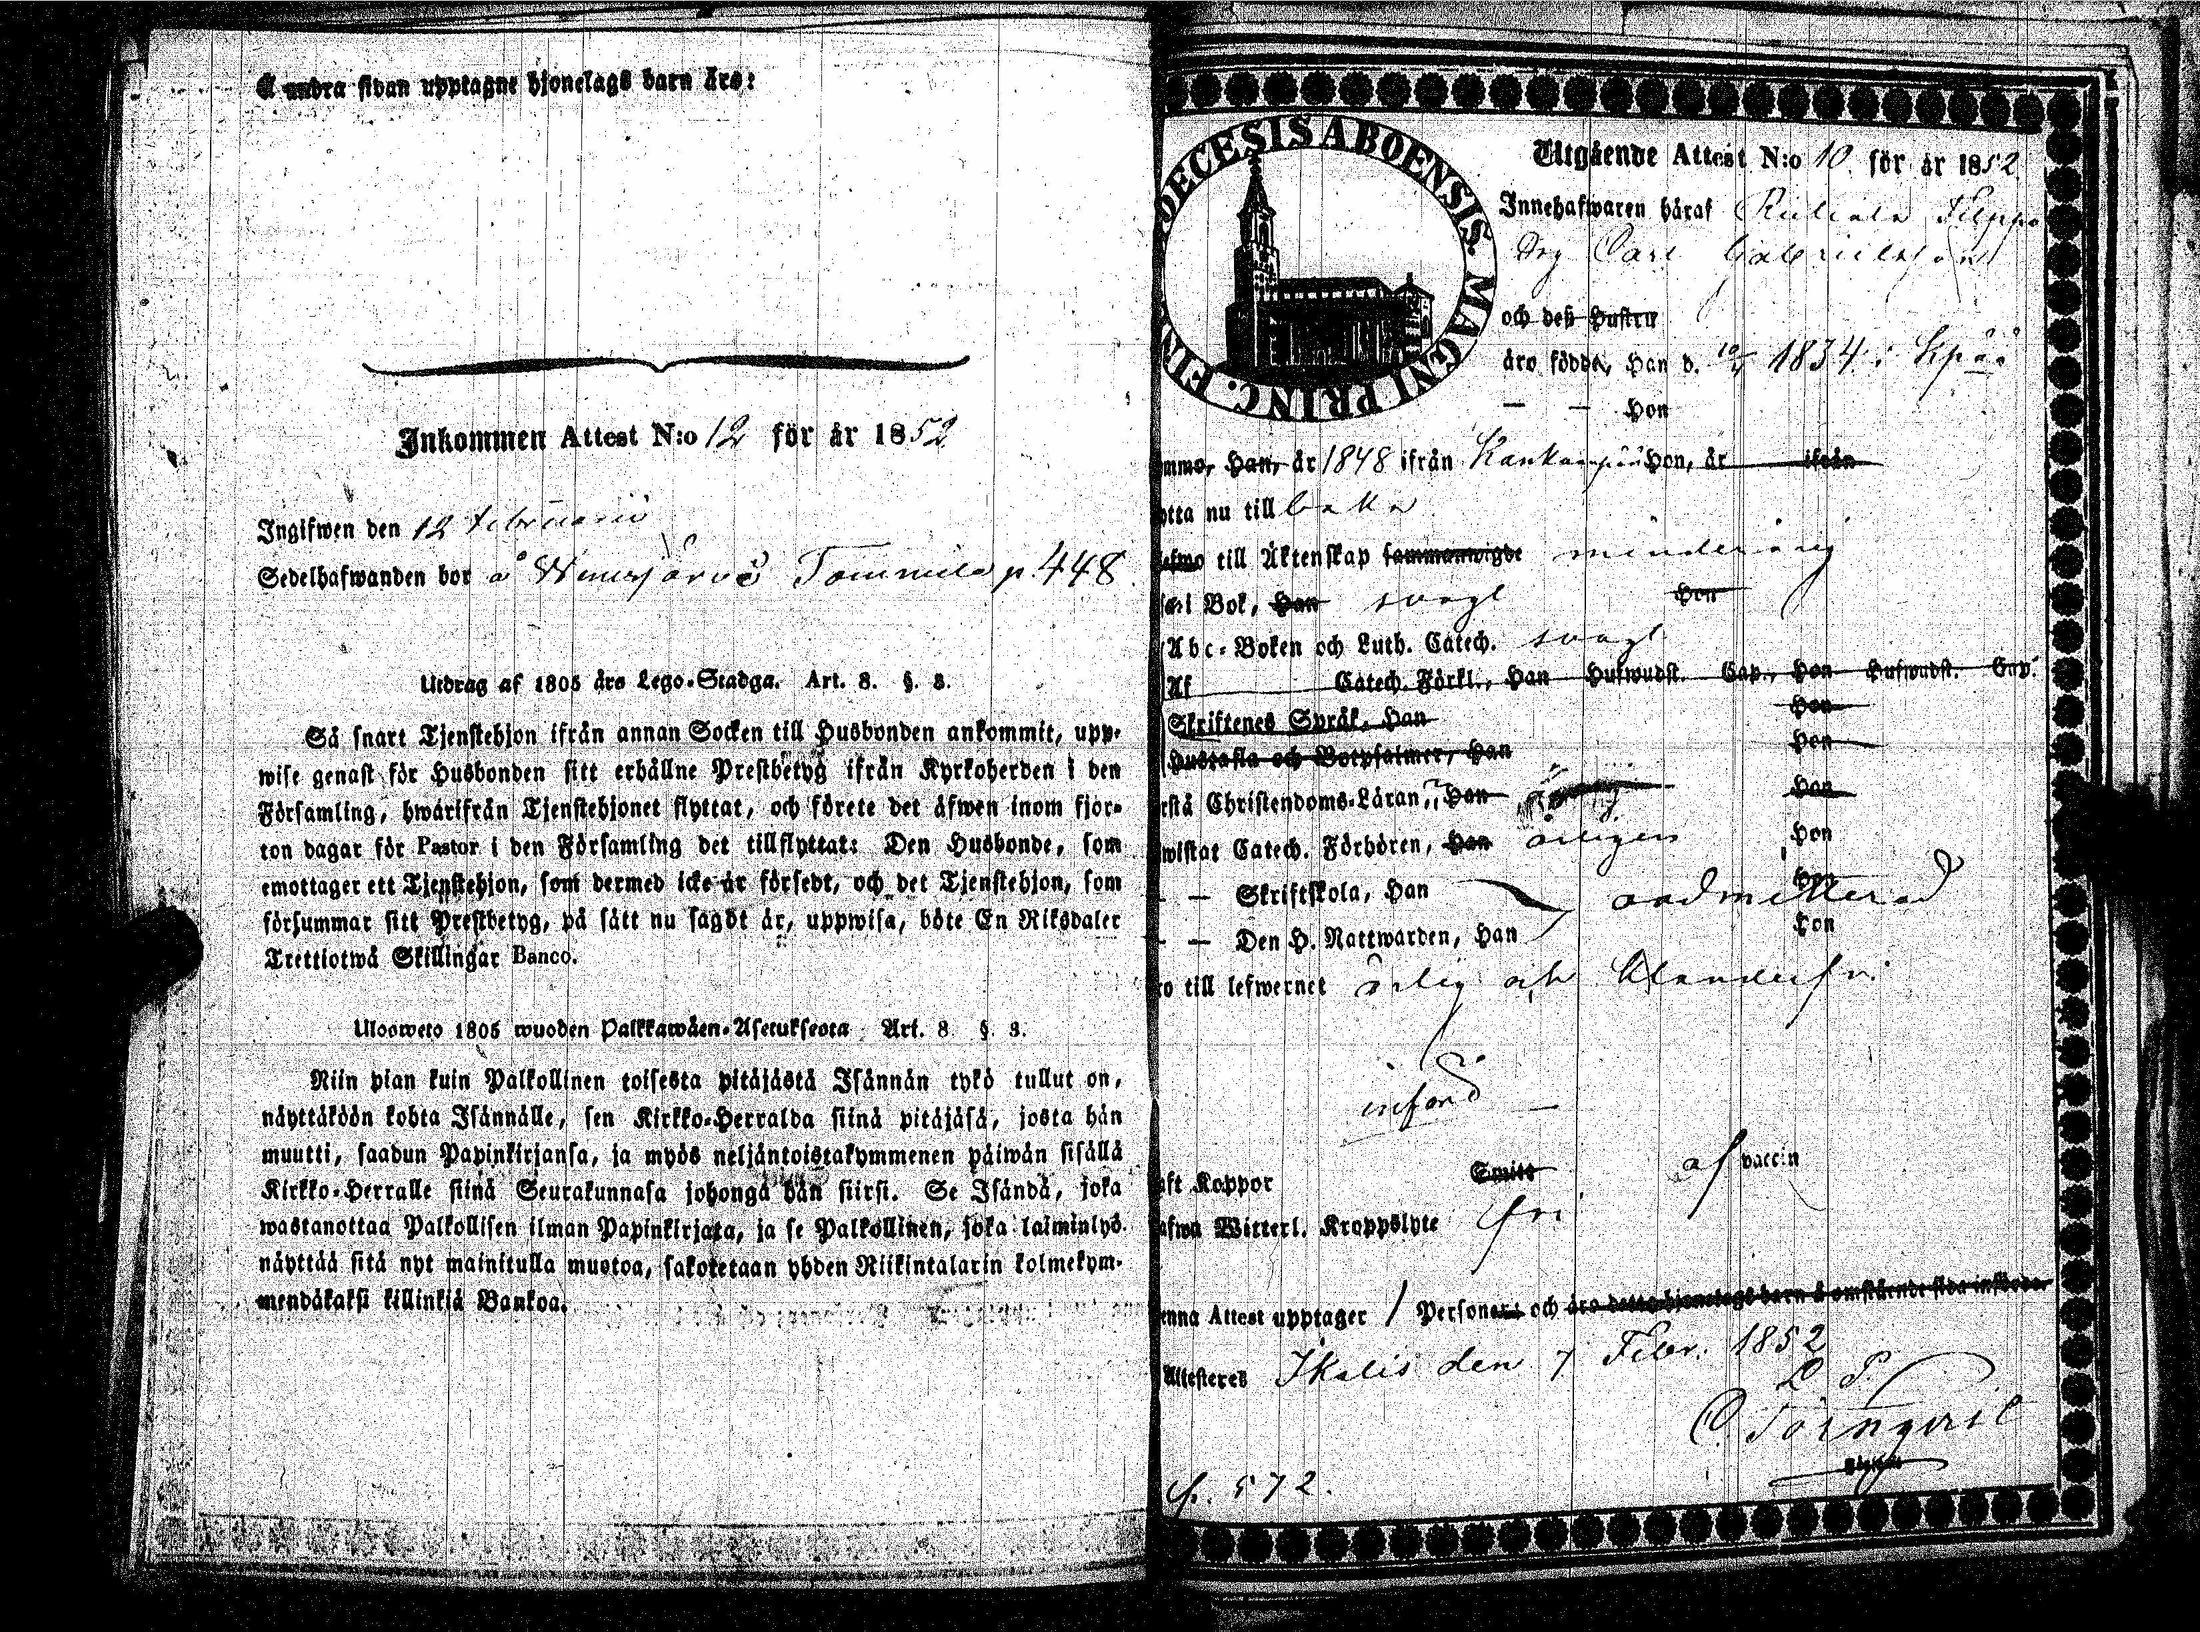 Å andra sidan upptagne hjonelags barn äro:
Inkommen Attest N:o 12 för år 1852
Ingifwen den 12 februarii
Sedelhafwanden bor å Tommila p. 448.
Utdrag af 1805 års Lego-Stadga. Art. 8. §. 3.
Så snart Tjenstehjon ifrån annan Socken till Husbonden ankommit, upp-
wise genast för Husbonden sitt erhållne Prestbetyg ifrån Kyrkoherden i den
Församling, hwarifrån Tjenstehjonet flyttat, och förete det äfwen inom fjor-
ton dagar för Pastor i den Församling det tillflyttat: Den Husbonde, som
emottager ett Tjenstehjon, som dermed icke är försedt, och det Tjenstehjon, som
försummar sitt Prestbetyg, på sätt nu sagdt är, uppwisa, böte En Riksdaler
Trettiotwå Skillingar Banco.
Ulosweto 1805 wuoden Palkkawäen-Asetuksesta Art. 8 §. 3.
Niin pian kuin Palkollinen toisesta pitäjästä Isännän tykö tullut on,
näyttäköön kohta Isännälle, sen Kirkko-Herralda siinä pitäjäsä, josta hän
muutti, saadun Papinkirjansa, ja myös neljäntoistakymmenen päiwän sisällä
Kirkko-Herralle siinä Seurakunnasa johonga hän siirsi. Se Isändä, joka
wastanottaa Palkollisen ilman Papinkirjata, ja se Palkollinen, joka laiminlyö
näyttää sitä nyt mainitulla muotoa, sakotetaan yhden Riikintalarin kolmekym-
mendäkaksi killinkiä Bankoa.
DECESIS ABOENSIS. MAGNI PRINC. FIN
Utgående Attest N:o 10. för år 1852.
Innehafwaren häraf
Drg Carl Gabrielsson
och deß Hustru
äro födde, Han d. 1834 i
— — Hon
mmo, Han, år 1848 ifrån Kankaanpää Hon, år ifrån
otta nu till baka
till Äktenskap sammanwigde minderårig
i Bok, Han svagt Hon
Abc-Boken och Luth. Catech. svagt
Af Catech. Förkl., Han Hufwudst. Cap., Hon Hufwudst. Cap.
Skriftenes Språk, Han Hon
Hustafla och Botpsalmer, Han Hon
rstå Christendoms-Läran, Han Hon
wistat Catech. Förhören, Han årligen Hon
— — Skriftskola, Han oadmitterad Hon
— — Den H. Nattwarden, Han Hon
ro till lefwernet ärlig och klanderfri
införd
aft Koppor Smitt af vaccin
afwa Witterl. Kroppslyte fri
enna Attest upptager 1 Personer och äro detta hjonelags barn å omstående sida införde
Attesteres Ikalis den 7 Febr. 1852
C. Törnqvist
p. 572.